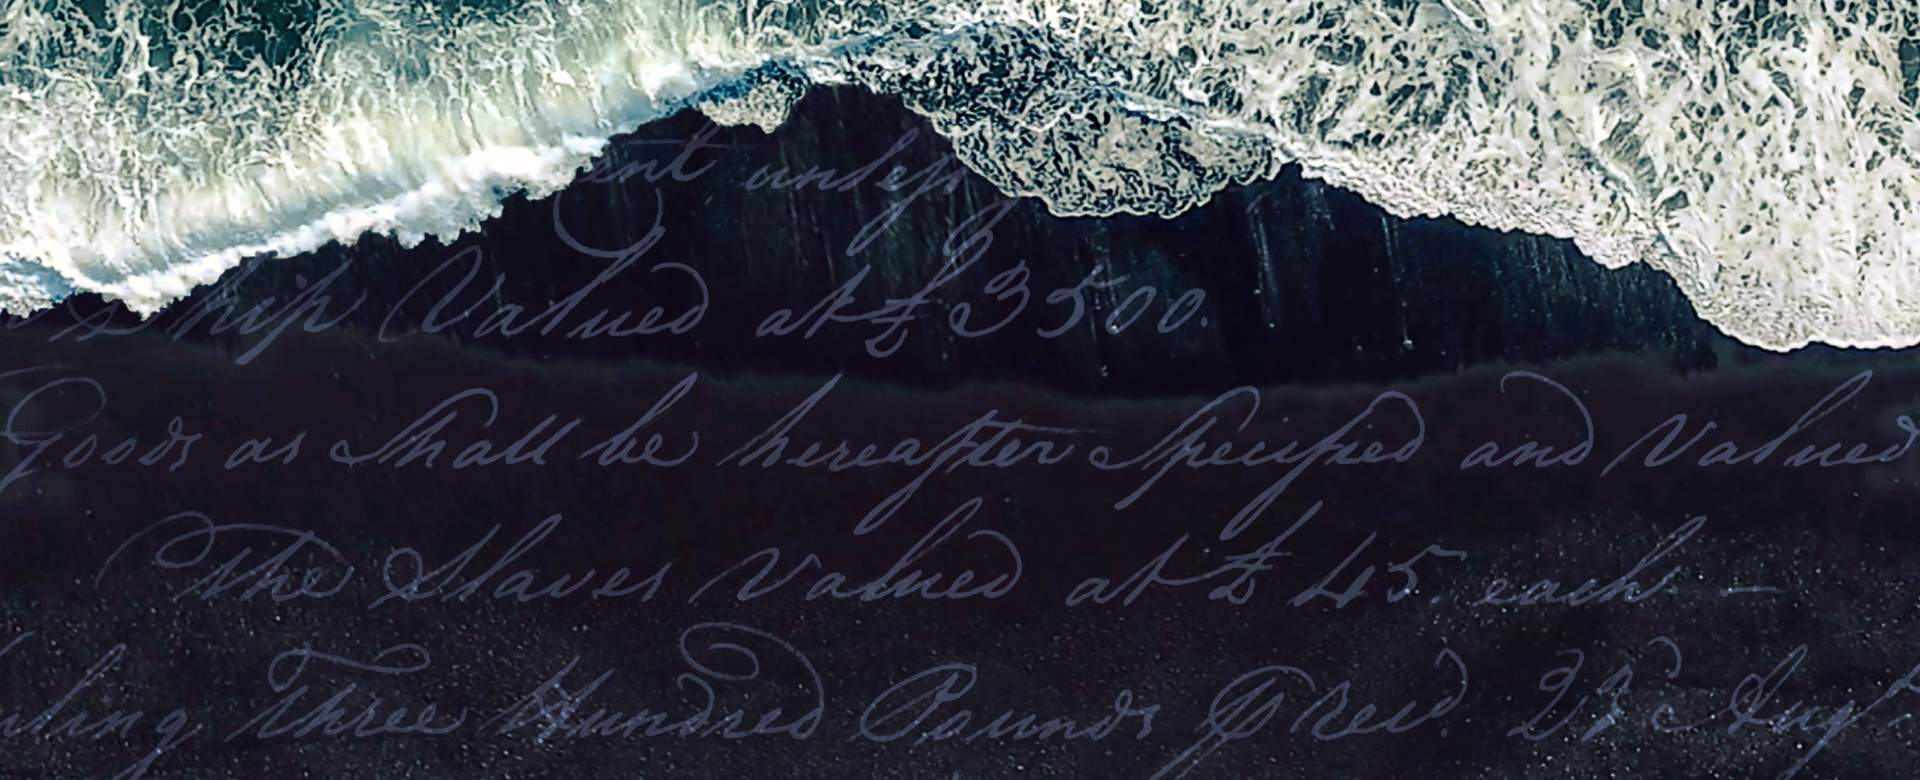 ship Valued at £3500.
Goods as Shall be hereafter Specified and Valued
The Slaves Valued at £45. each –
Three Hundred Pounds ℔ Rec'd. Augt